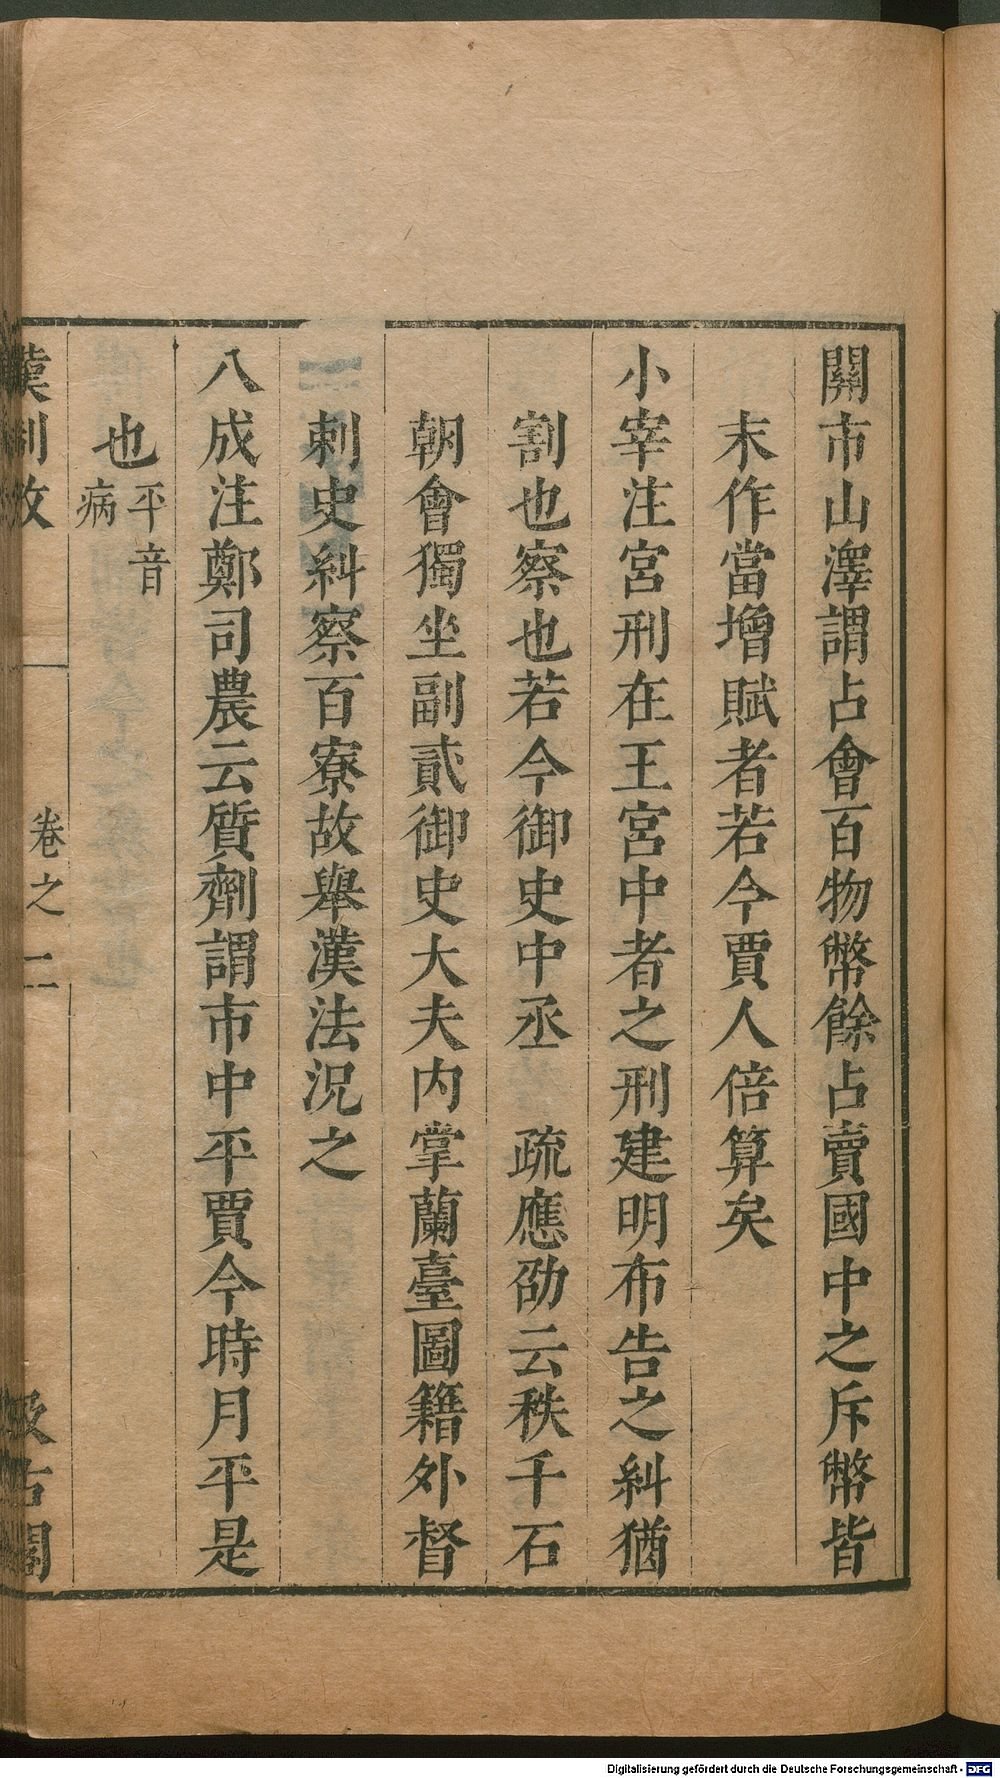 關市山澤謂占會百物幣餘占賣國中之斥幣皆
末作當增賦者若今賈人倍算矣
小宰注宮刑在王宮中者之刑建明布告之糾猶
割也察也若今御史中丞 疏應劭云秩千石
朝會獨坐副貳御史大夫內掌蘭臺圖籍外督
刺史糾察百寮故舉漢法況之
八成注鄭司農云質劑謂市中平賈今時月平是
也平音病
漢制攷 卷之二 汲古閣
Digitalisierung gefördert durch die Deutsche Forschungsgemeinschaft - DFG